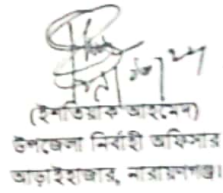 (ইশতিয়াক আহমেদ)
উপজেলা নির্বাহী অফিসার
আড়াইহাজার, নারায়নগঞ্জ।